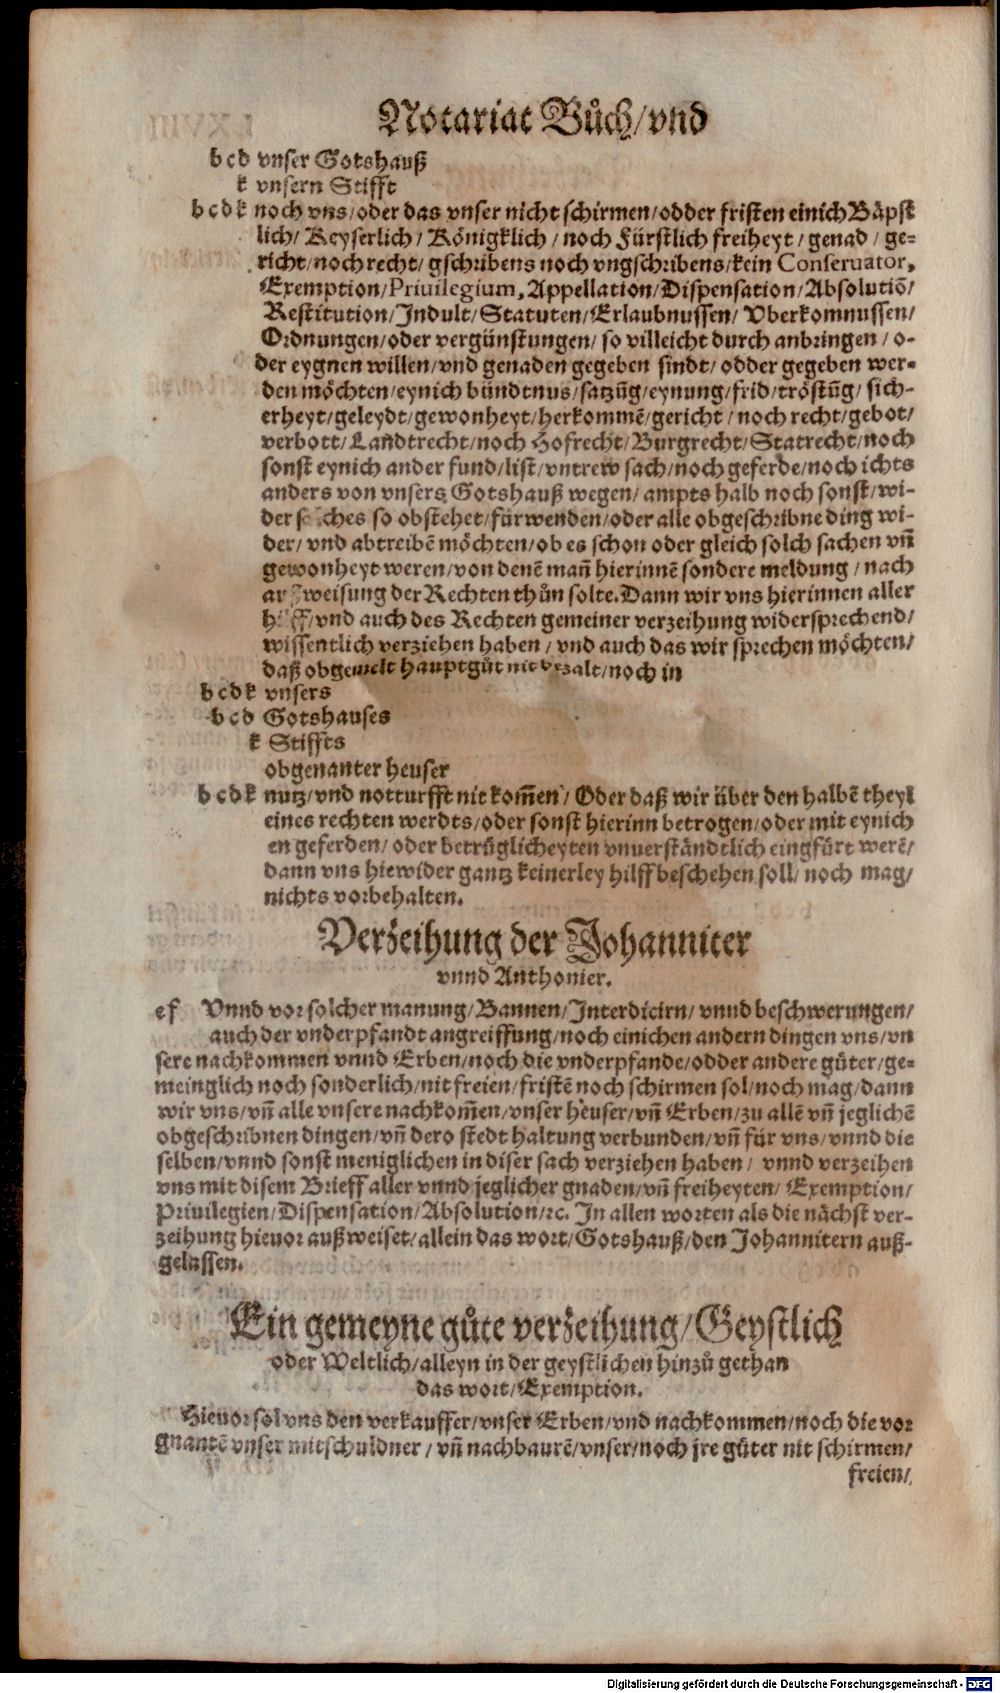 Notariat Bůch/vnd
b c d vnser Gotshauß
k vnsern Stifft
b c d k noch vns/oder das vnser nicht schirmen/odder fristen einich Bäpst
lich/ Keyserlich/ Königklich/noch Fürstlich freiheyt/genad/ge=
richt/noch recht/gschribens noch vngschribens/kein Conseruator,
Exemption/Priuilegium, Appellation/Dispensation/Absolutiō/
Restitution/Indult/Statuten/Erlaubnussen/ Vberkomnussen/
Ordnungen/oder vergünstungen/so villeicht durch anbringen/o-
der eygnen willen/vnd genaden gegeben sindt/odder gegeben wer-
den möchten/eynich bündtnus/satzūg/eynung/frid/tröstūg/sich-
erheyt/geleydt/gewonheyt/herkommē/gericht/noch recht/gebot/
verbott/Landtrecht/noch Hofrecht/Burgrecht/Statrecht/noch
sonst eynich ander fund/list/vntrew sach/noch geferde/noch ichts
anders von vnsers Gotshauß wegen/ampts halb noch sonst/wi-
der ches so obstehet/fürwenden/oder alle obgeschribne ding wi-
der/vnd abtreibē möchten/ob es schon oder gleich solch sachen vñ
gewonheyt weren/von denē mañ hierinnē sondere meldung/nach
weisung der Rechten thůn solte. Dann wir vns hierinnen aller
/vnd auch des Rechten gemeiner verzeihung widersprechend/
wissentlich verziehen haben/vnd auch das wir sprechen möchten/
daß obgemelt hauptgůt nit bezalt/noch in
b c d k vnsers
b c d Gotshauses
k Stiffts
obgenanter heuser
b c d k nutz/vnd notturfft nit kom̄en/Oder daß wir über den halbē theyl
eines rechten werdts/oder sonst hierinn betrogen/oder mit eynich
en geferden/oder betrüglicheyten vnuerständtlich eingfürt werē/
dann vns hiewider gantz keinerley hilff beschehen soll/noch mag/
nichts vorbehalten.
Verzeihung der Johanniter
vnnd Anthonier.
e f Vnnd vor solcher manung/Bannen/Interdicirn/vnnd beschwerungen/
auch der vnderpfandt angreiffung/noch einichen andern dingen vns/vn
sere nachkommen vnnd Erben/noch die vnderpfande/odder andere güter/ge=
meinglich noch sonderlich/nit freien/fristē noch schirmen sol/noch mag/dann
wir vns/vñ alle vnsere nachkom̄en/vnser heuser/vñ Erben/zu allē vñ jeglichē
obgeschribnen dingen/vñ dero stedt haltung verbunden/vñ für vns/vnnd die
selben/vnnd sonst meniglichen in diser sach verziehen haben/ vnnd verzeihen
vns mit disem Brieff aller vnnd jeglicher gnaden/vñ freiheyten/Exemption/
Priuilegien/Dispensation/Absolution/ꝛc. In allen worten als die nächst ver-
zeihung hieuor außweiset/allein das wort/Gotshauß/den Johannitern auß-
gelassen.
Ein gemeyne gůte verzeihung/Geystlich
oder Weltlich/alleyn in der geystlichen hinzů gethan
das wort/Exemption.
Hieuor sol vns den verkauffer/vnser Erben/vnd nachkommen/noch die vor
gnantē vnser mitschuldner/vñ nachbaurē/vnser/noch jre güter nit schirmen/
freien/
Digitalisierung gefördert durch die Deutsche Forschungsgemeinschaft - DFG